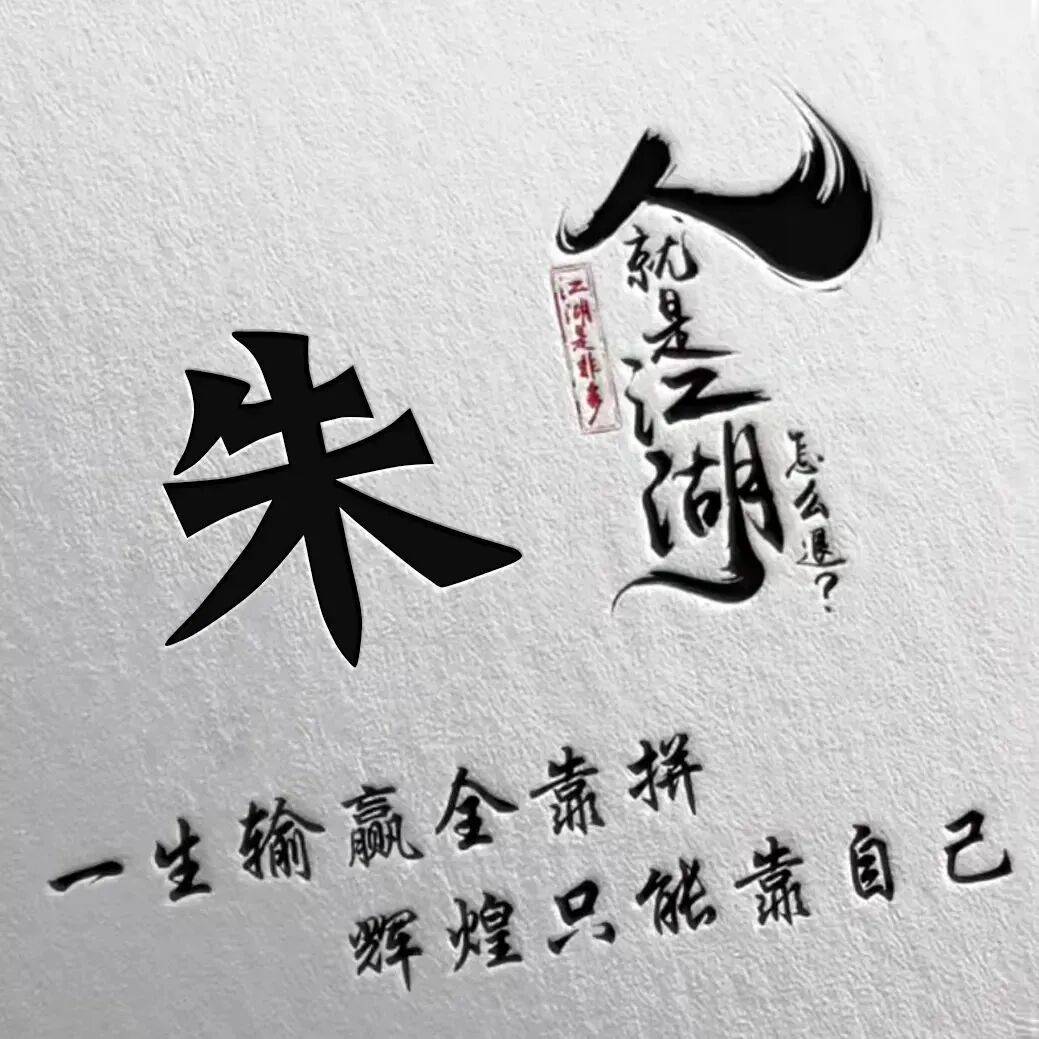 朱
人就是江湖
江湖是非多
怎么退？
一生输赢全靠拼
辉煌只能靠自己